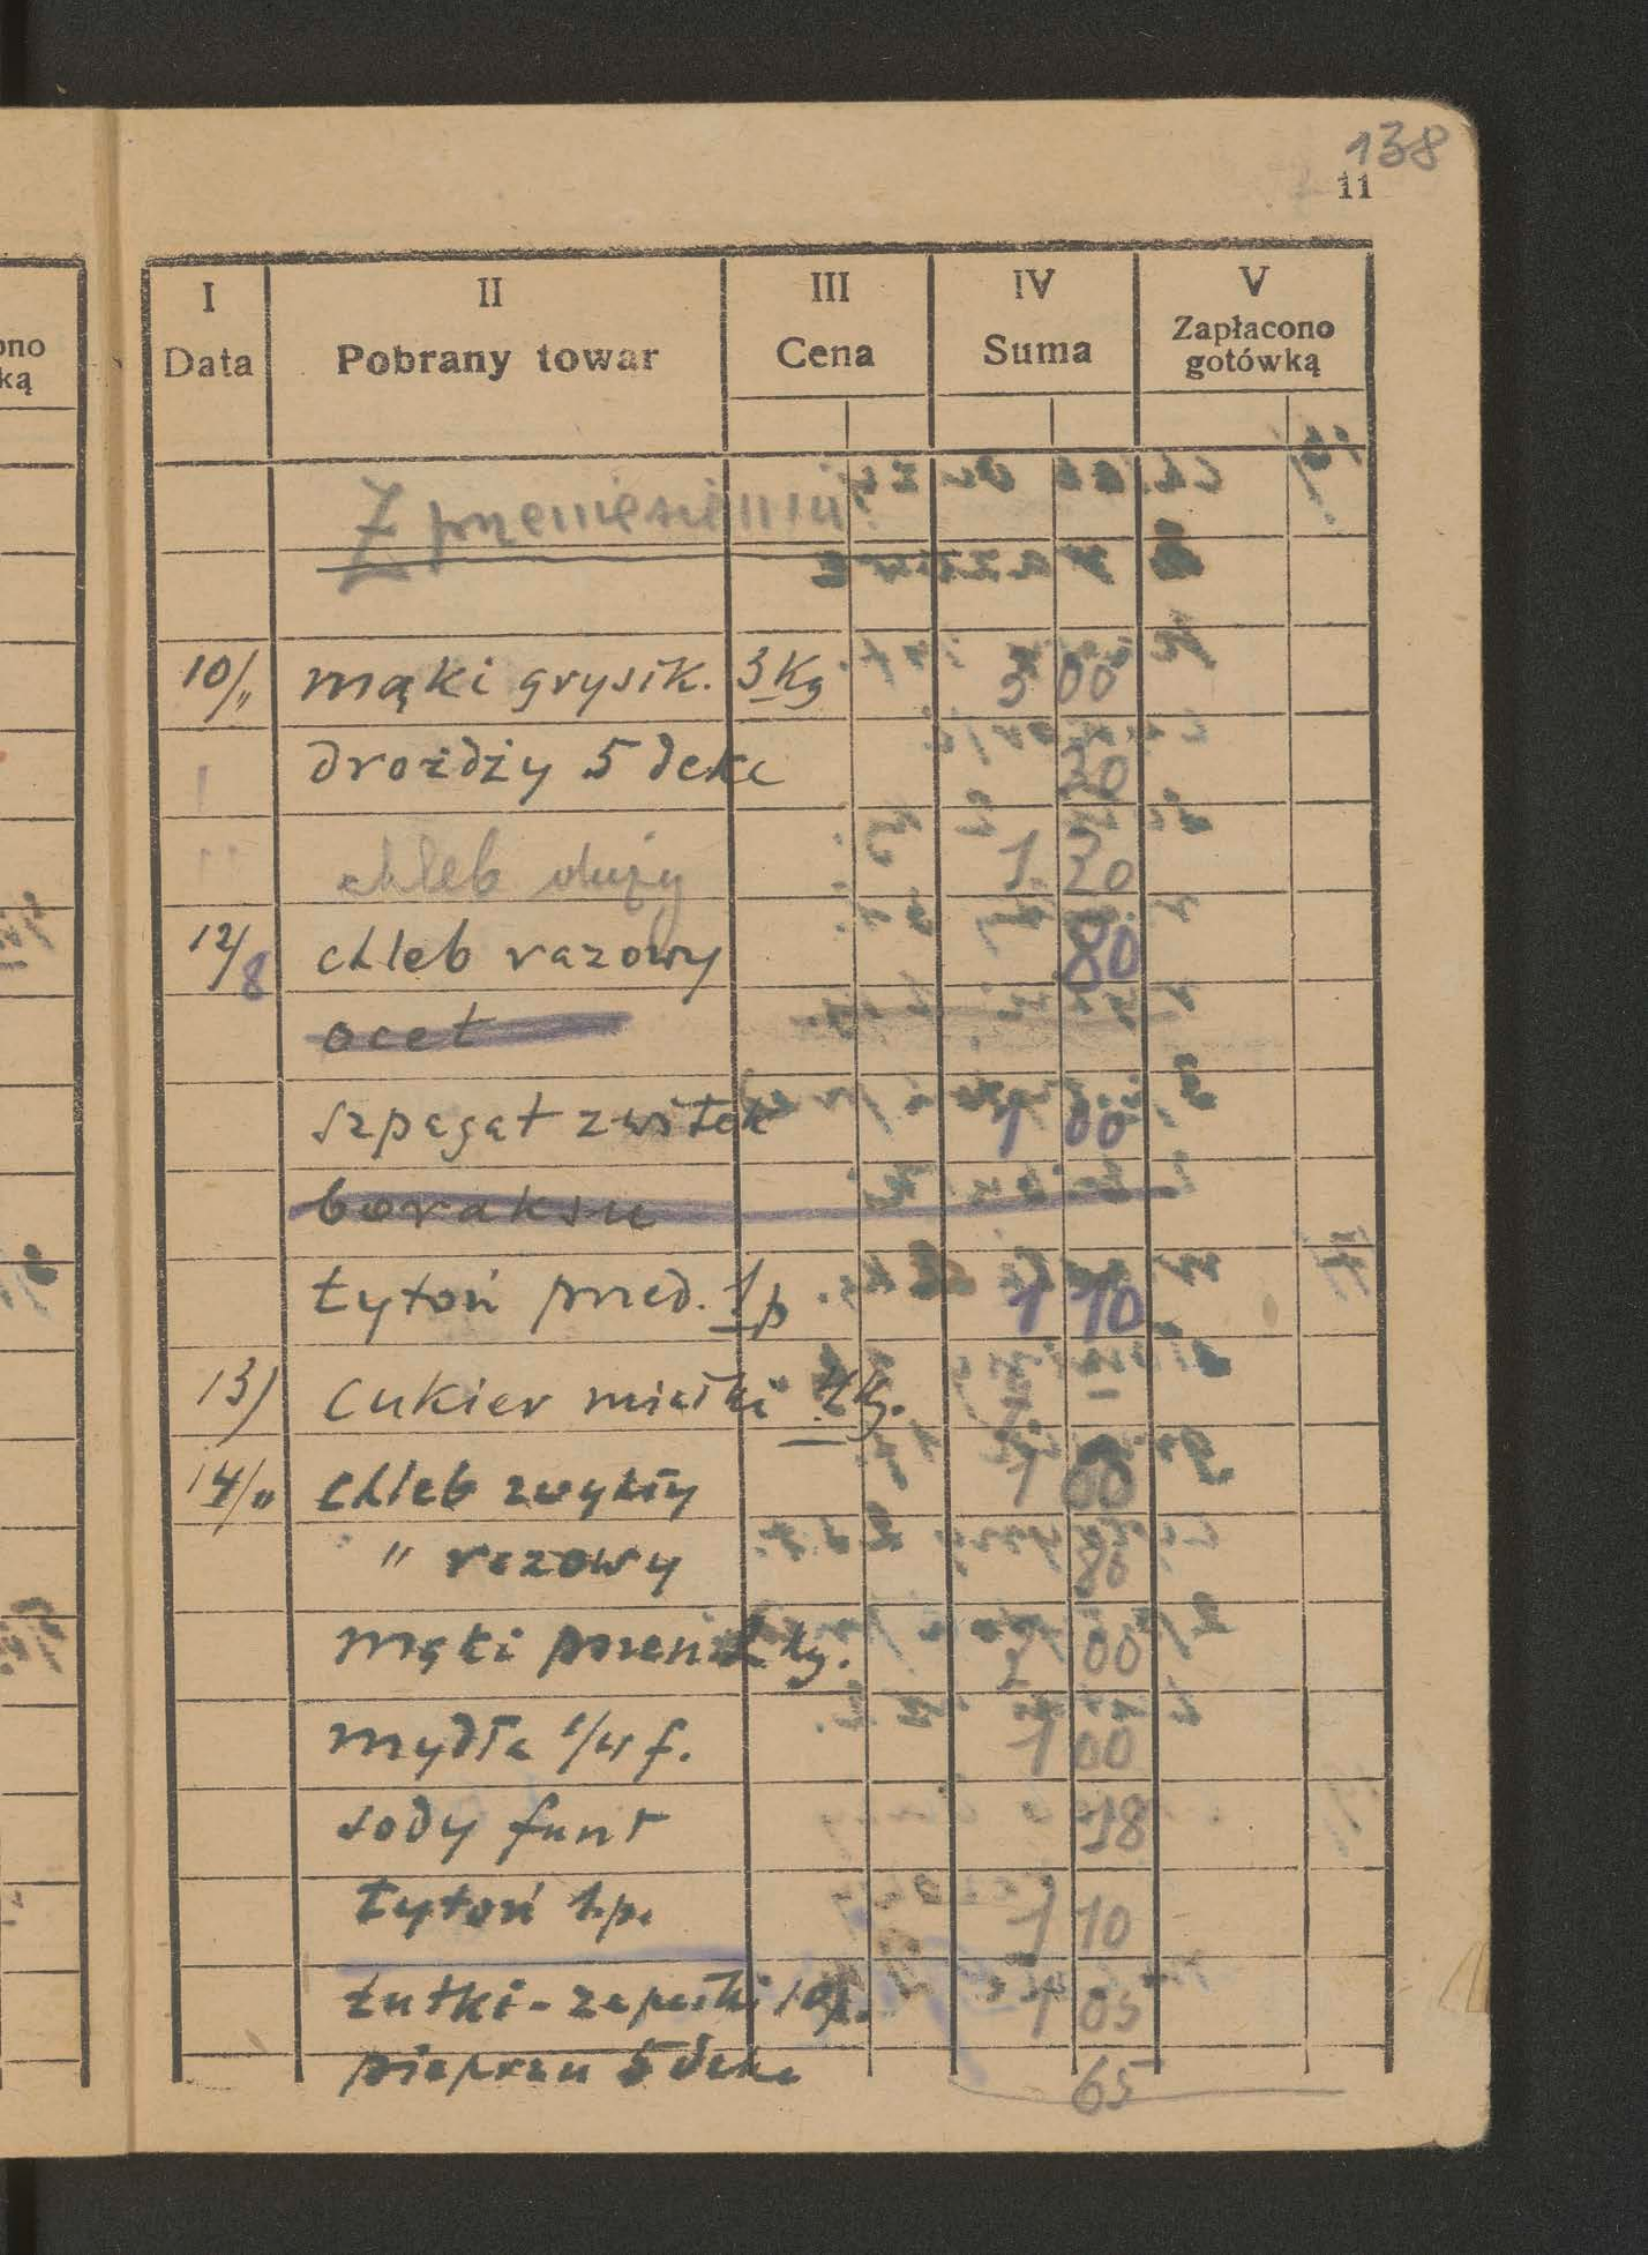 138
11
I II III IV V
Data Pobrany towar Cena Suma Zapłacono gotówką
Z przeniesienia
10/„ mąki grysik. 3 Kg 3 00
drożdży 5 deka 30
chleb duży 1 20
12/8 chleb razowy 80
ocet
szpagat zwitek 1 00
boraksu
tytoń przed. 1 p 1 10
13) cukier miałki kg.
14/„ chleb zwykły 1 00
" razowy 80
mąki pszen 2 kg. 2 00
mydła 1/4 f. 1 00
sody funt 18
tytoń 1 p. 1 10
tutki - zapałki 1 05
pieprzu 5 deka 65
ono
ką